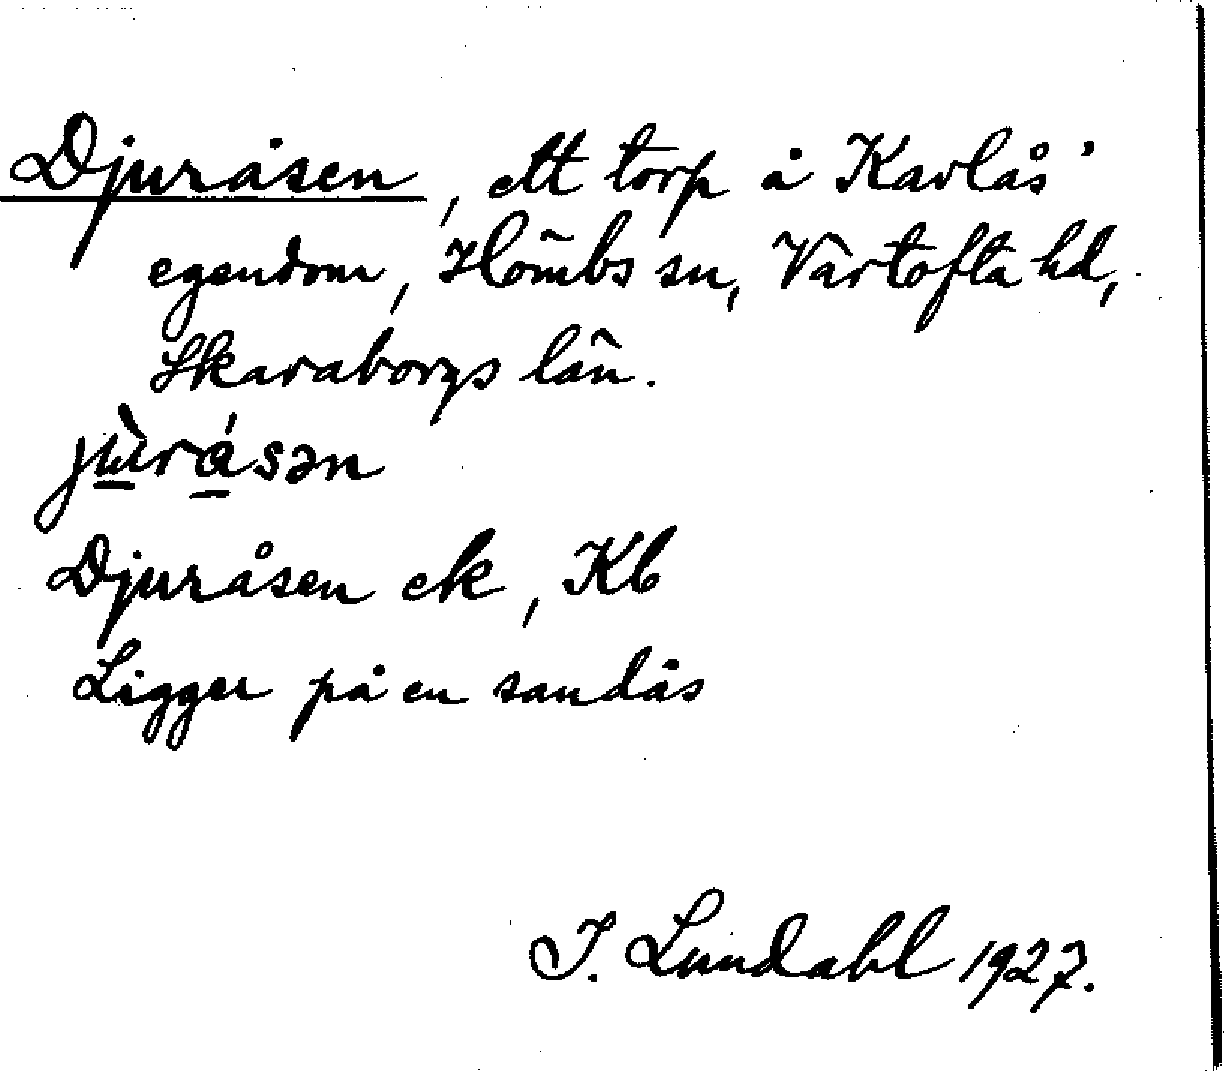 Djuråsen, ett torp å Karlås'
egendom, Hömbs sn, Vartofta hd,
Skaraborgs län.
jùråsən
Djuråsen ek, Kb
Ligger på en sandås
I. Lundahl 1927.